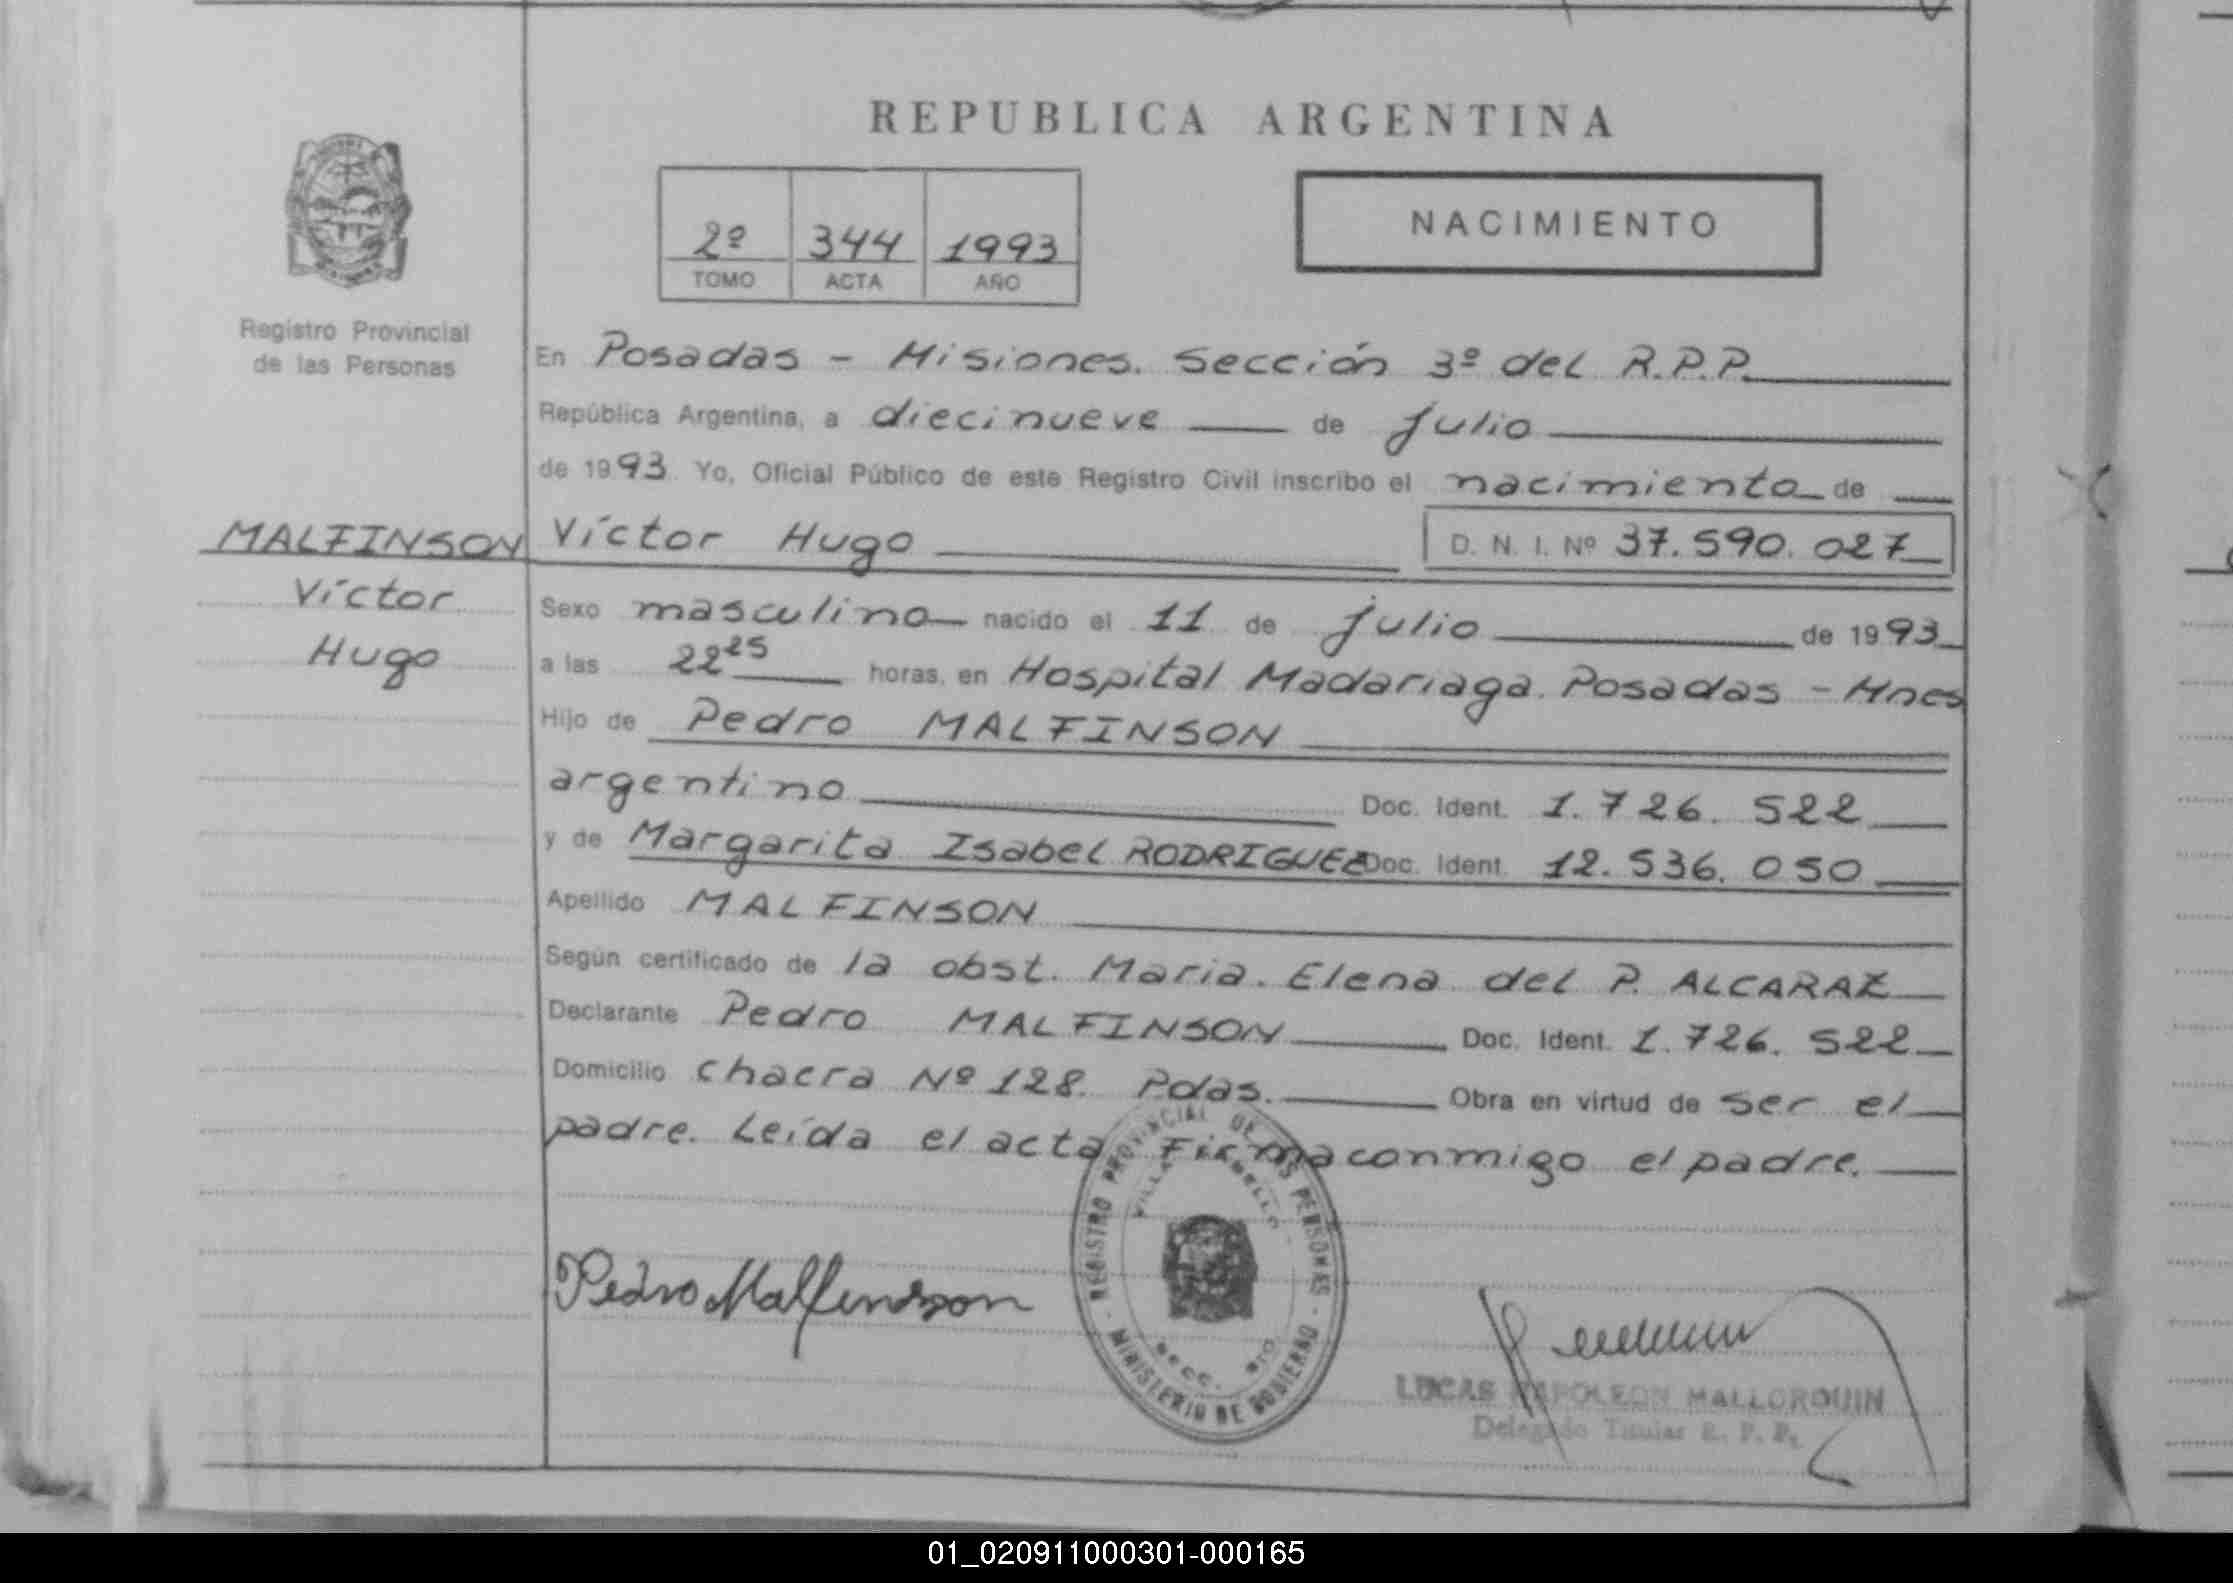 REPUBLICA ARGENTINA
2º 344 1993
TOMO ACTA AÑO
NACIMIENTO
Registro Provincial
de las Personas
En Posadas - Misiones. Sección 3º del R.P.P.
República Argentina, a diecinueve de julio
de 1993. Yo, Oficial Público de este Registro Civil inscribo el nacimiento de
MALFINSON Víctor Hugo D. N. I. Nº 37.590.027
Víctor
Hugo
Sexo masculino nacido el 11 de julio de 1993
a las 22 25 horas, en Hospital Madariaga. Posadas - Mnes
Hijo de Pedro MALFINSON
argentino Doc. Ident. 1.726.522
y de Margarita Isabel RODRIGUEZ Doc. Ident. 12.536.050
Apellido MALFINSON
Según certificado de la obst. Maria. Elena del P. ALCARAZ
Declarante Pedro MALFINSON Doc. Ident. 1.726.522
Domicilio chacra Nº 128. Pdas. Obra en virtud de ser el
padre. Leída el acta Firma conmigo el padre.
REGISTRO PROVINCIAL DE LAS PERSONAS
VILLA
SECC.
MINISTERIO DE GOBIERNO
Pedro Malfinson
LUCAS NAPOLEON MALLORQUIN
Delegado Titular R. P. P.
01_020911000301-000165